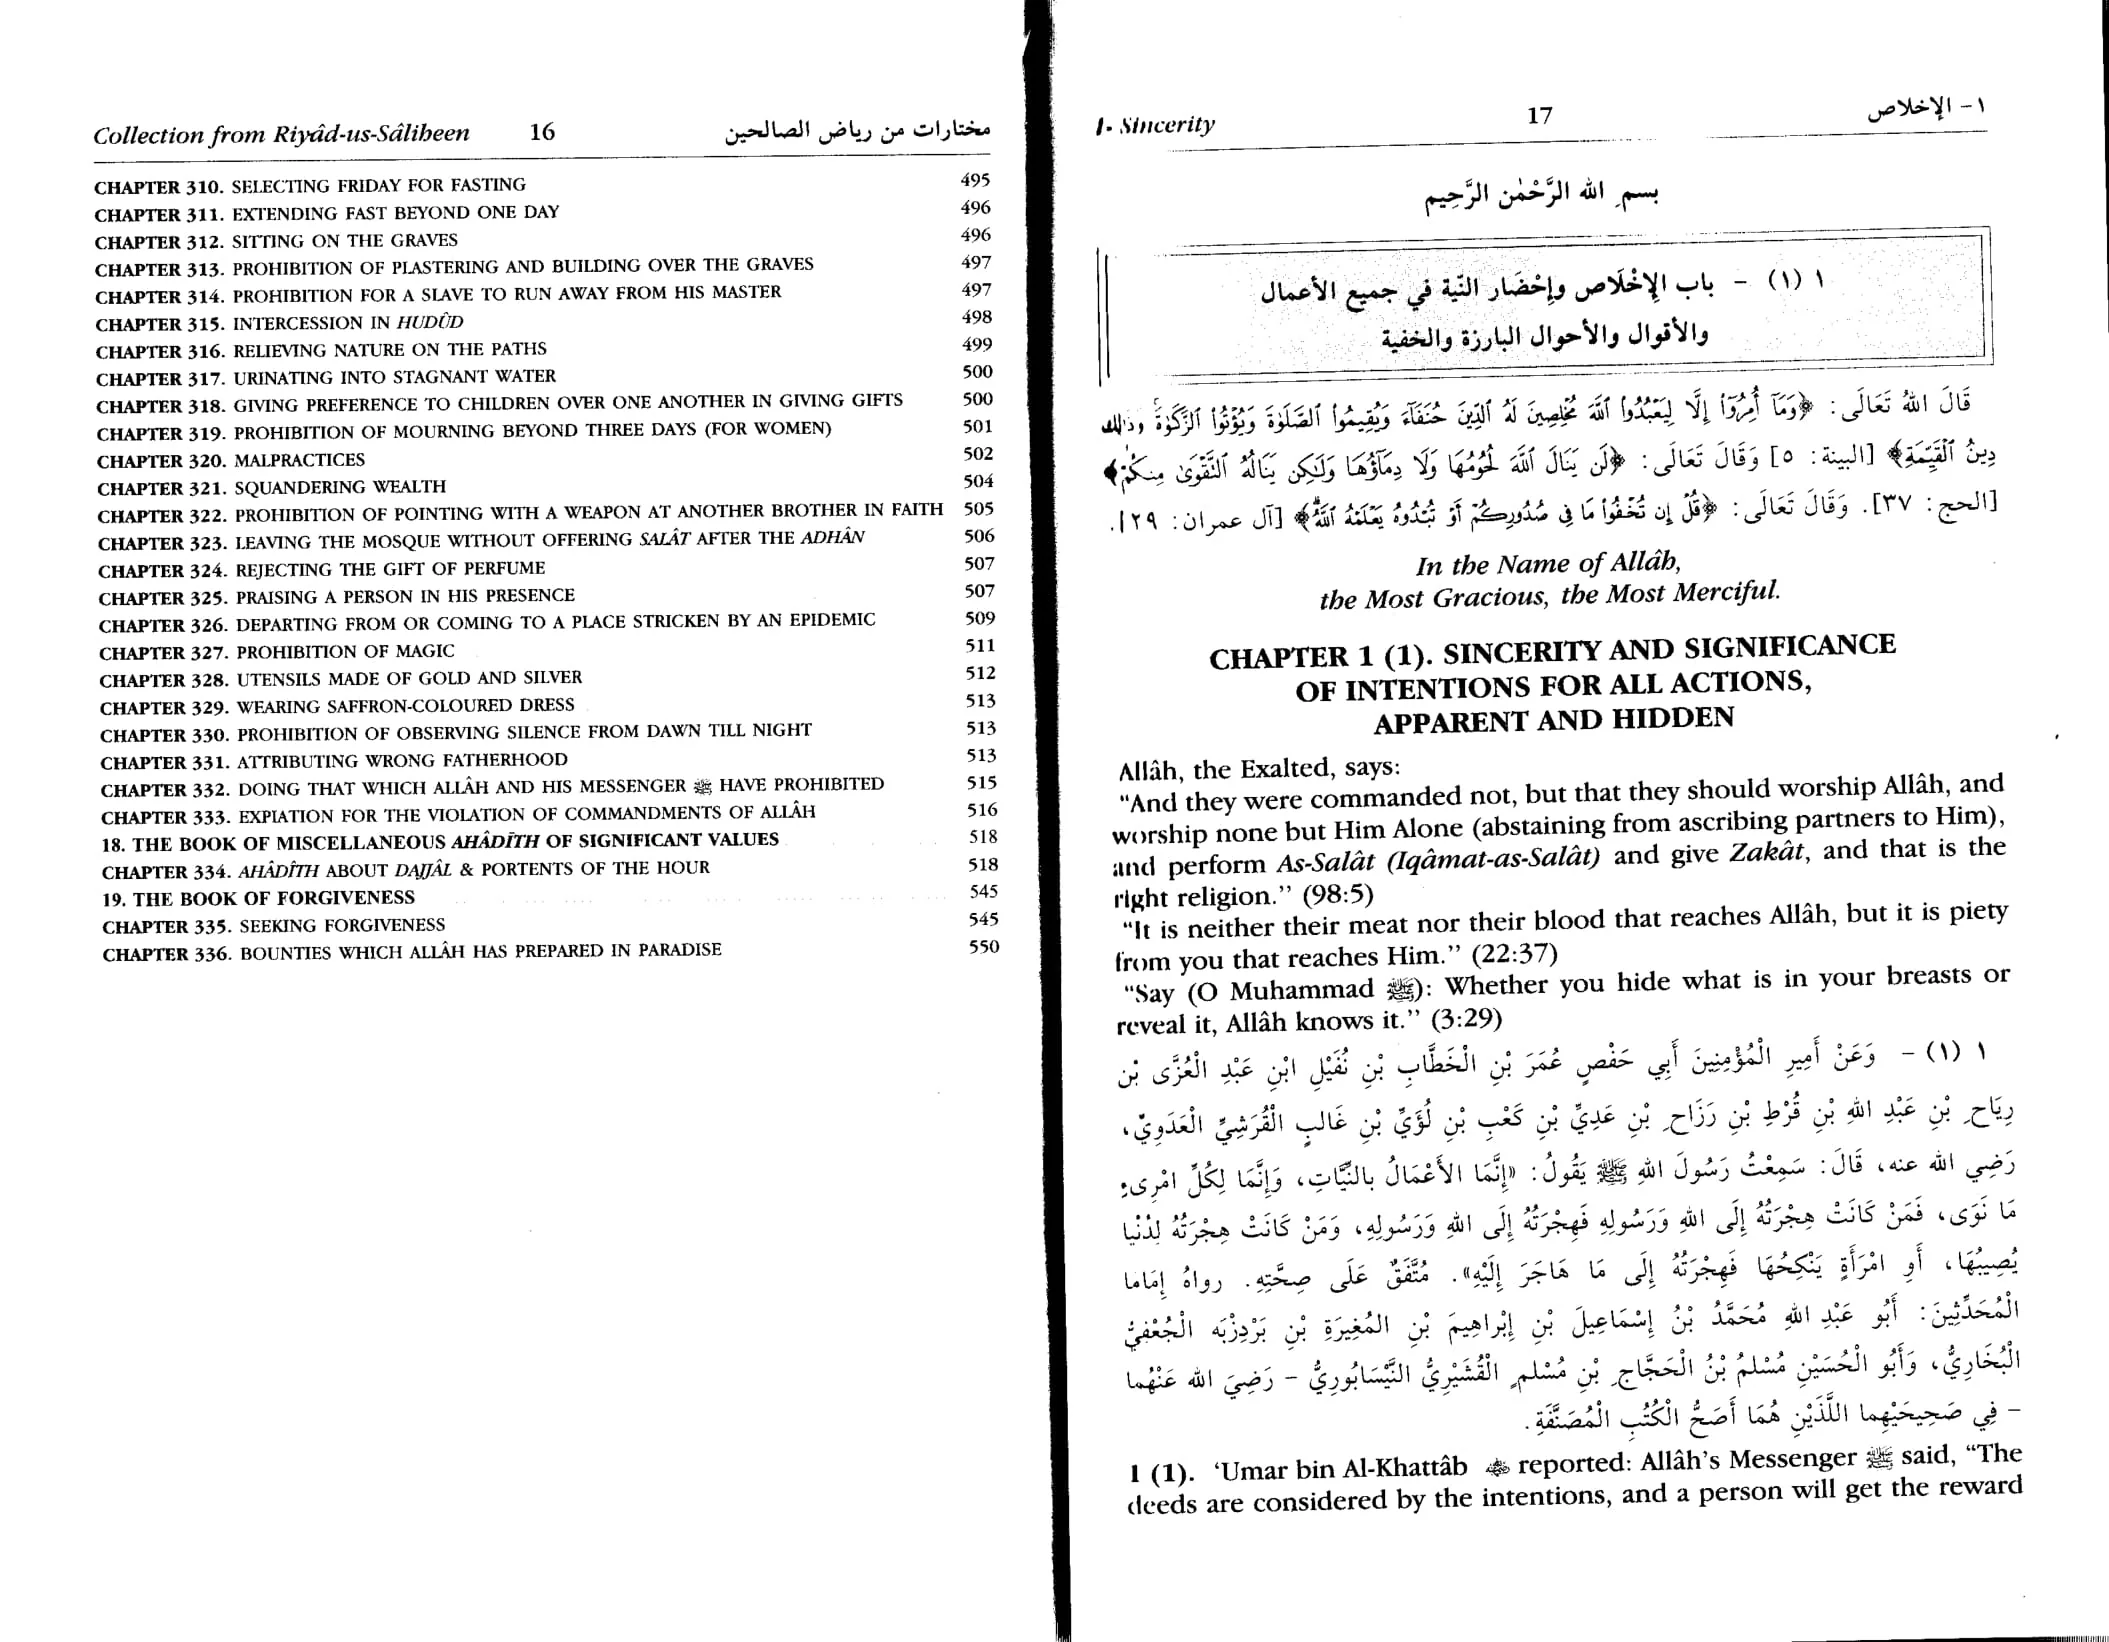 Collection from Riyâd-us-Sâliheen 16 مختارات من رياض الصالحين
CHAPTER 310. SELECTING FRIDAY FOR FASTING 495
CHAPTER 311. EXTENDING FAST BEYOND ONE DAY 496
CHAPTER 312. SITTING ON THE GRAVES 496
CHAPTER 313. PROHIBITION OF PLASTERING AND BUILDING OVER THE GRAVES 497
CHAPTER 314. PROHIBITION FOR A SLAVE TO RUN AWAY FROM HIS MASTER 497
CHAPTER 315. INTERCESSION IN HUDÛD 498
CHAPTER 316. RELIEVING NATURE ON THE PATHS 499
CHAPTER 317. URINATING INTO STAGNANT WATER 500
CHAPTER 318. GIVING PREFERENCE TO CHILDREN OVER ONE ANOTHER IN GIVING GIFTS 500
CHAPTER 319. PROHIBITION OF MOURNING BEYOND THREE DAYS (FOR WOMEN) 501
CHAPTER 320. MALPRACTICES 502
CHAPTER 321. SQUANDERING WEALTH 504
CHAPTER 322. PROHIBITION OF POINTING WITH A WEAPON AT ANOTHER BROTHER IN FAITH 505
CHAPTER 323. LEAVING THE MOSQUE WITHOUT OFFERING SALÂT AFTER THE ADHÂN 506
CHAPTER 324. REJECTING THE GIFT OF PERFUME 507
CHAPTER 325. PRAISING A PERSON IN HIS PRESENCE 507
CHAPTER 326. DEPARTING FROM OR COMING TO A PLACE STRICKEN BY AN EPIDEMIC 509
CHAPTER 327. PROHIBITION OF MAGIC 511
CHAPTER 328. UTENSILS MADE OF GOLD AND SILVER 512
CHAPTER 329. WEARING SAFFRON-COLOURED DRESS 513
CHAPTER 330. PROHIBITION OF OBSERVING SILENCE FROM DAWN TILL NIGHT 513
CHAPTER 331. ATTRIBUTING WRONG FATHERHOOD 513
CHAPTER 332. DOING THAT WHICH ALLÂH AND HIS MESSENGER ﷺ HAVE PROHIBITED 515
CHAPTER 333. EXPIATION FOR THE VIOLATION OF COMMANDMENTS OF ALLÂH 516
18. THE BOOK OF MISCELLANEOUS AHÂDÎTH OF SIGNIFICANT VALUES 518
CHAPTER 334. AHÂDÎTH ABOUT DAJJÂL & PORTENTS OF THE HOUR 518
19. THE BOOK OF FORGIVENESS 545
CHAPTER 335. SEEKING FORGIVENESS 545
CHAPTER 336. BOUNTIES WHICH ALLÂH HAS PREPARED IN PARADISE 550
1- Sincerity 17 ١- الإخلاص
بسم الله الرَّحْمٰن الرَّحِيم
١ (١) - باب الإِخْلَاص وإحْضَار النيَّة في جميع الأعمال
والأقوال والأحوال البارزة والخفية
قَالَ اللهُ تَعَالَى: ﴿وَمَآ أُمِرُوٓا۟ إِلَّا لِيَعْبُدُوا۟ ٱللَّهَ مُخْلِصِينَ لَهُ ٱلدِّينَ حُنَفَآءَ وَيُقِيمُوا۟ ٱلصَّلَوٰةَ وَيُؤْتُوا۟ ٱلزَّكَوٰةَ ۚ وَذَٰلِكَ
دِينُ ٱلْقَيِّمَةِ﴾ [البينة: ٥] وَقَالَ تَعَالَى: ﴿لَن يَنَالَ ٱللَّهَ لُحُومُهَا وَلَا دِمَآؤُهَا وَلَٰكِن يَنَالُهُ ٱلتَّقْوَىٰ مِنكُمْ﴾
[الحج: ٣٧]. وَقَالَ تَعَالَى: ﴿قُلْ إِن تُخْفُوا۟ مَا فِى صُدُورِكُمْ أَوْ تُبْدُوهُ يَعْلَمْهُ ٱللَّهُ﴾ [آل عمران: ٢٩].
In the Name of Allâh,
the Most Gracious, the Most Merciful.
CHAPTER 1 (1). SINCERITY AND SIGNIFICANCE
OF INTENTIONS FOR ALL ACTIONS,
APPARENT AND HIDDEN
Allâh, the Exalted, says:
“And they were commanded not, but that they should worship Allâh, and
worship none but Him Alone (abstaining from ascribing partners to Him),
and perform As-Salât (Iqâmat-as-Salât) and give Zakât, and that is the
right religion.” (98:5)
“It is neither their meat nor their blood that reaches Allâh, but it is piety
from you that reaches Him.” (22:37)
“Say (O Muhammad ﷺ): Whether you hide what is in your breasts or
reveal it, Allâh knows it.” (3:29)
١ (١) - وَعَنْ أَمِيرِ الْمُؤْمِنِينَ أَبِي حَفْصٍ عُمَرَ بْنِ الْخَطَّابِ بْنِ نُفَيْلِ ابْنِ عَبْدِ الْعُزَّى بْن
رِيَاحِ بْنِ عَبْدِ اللهِ بْنِ قُرْطِ بْنِ رَزَاحِ بْنِ عَدِيِّ بْنِ كَعْبِ بْنِ لُؤَيِّ بْنِ غَالِبٍ الْقُرَشِيِّ الْعَدَوِيِّ،
رَضِي الله عنه، قَالَ: سَمِعْتُ رَسُولَ اللهِ ﷺ يَقُولُ: «إِنَّمَا الأَعْمَالُ بِالنِّيَّاتِ، وَإِنَّمَا لِكُلِّ امْرِىءٍ
مَا نَوَى، فَمَنْ كَانَتْ هِجْرَتُهُ إِلَى اللهِ وَرَسُولِهِ فَهِجْرَتُهُ إِلَى اللهِ وَرَسُولِهِ، وَمَنْ كَانَتْ هِجْرَتُهُ لِدُنْيَا
يُصِيبُهَا، أَوِ امْرَأَةٍ يَنْكِحُهَا فَهِجْرَتُهُ إِلَى مَا هَاجَرَ إِلَيْهِ». مُتَّفَقٌ عَلَى صِحَّتِهِ. رواهُ إِمَاما
الْمُحَدِّثِينَ: أَبُو عَبْدِ اللهِ مُحَمَّدُ بْنُ إِسْمَاعِيلَ بْنِ إِبْراهِيمَ بْنِ الْمُغِيرَةِ بْنِ بَرْدِزْبَه الْجُعْفِيُّ
الْبُخَارِيُّ، وَأَبُو الْحُسَيْنِ مُسْلمُ بْنُ الْحَجَّاجِ بْنِ مُسْلمٍ الْقُشَيْرِيُّ النَّيْسَابُورِيُّ - رَضِيَ الله عَنْهُما
- فِي صَحِيحَيْهِما اللَّذَيْنِ هُمَا أَصَحُّ الْكُتُبِ الْمُصَنَّفَةِ.
1 (1). ‘Umar bin Al-Khattâb رضي الله عنه reported: Allâh’s Messenger ﷺ said, “The
deeds are considered by the intentions, and a person will get the reward